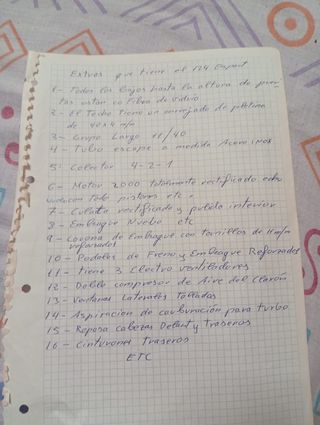 Extras que tiene el 124 Esport
1 - Todos los bajos hasta la altura de puer-
tas están co Fibra de Vidrio
2 - El Techo Tiene un enrejado de pletina
de 40x4 m/m
3 - Grupo Largo 11/40
4 - Tubo escape a medida Acero inox
5 - Colector 4-2-1
6 - Motor 2000 totalmente rectificado
todo pistones etc.
7 - Culata rectificada y pulida interior
8 - Embrague Nuevo etc
9 - Campana de Embrague con tornillos de
reforzados
10 - Pedales de Freno y Embrague Reforzados
11 - tiene 3 Electro ventiladores
12 - Doble compresor de Aire del Claxón
13 - Ventanas Laterales
14 - Aspiración de carburación para turbo
15 - Reposa cabezas Delant y Traseros
16 - Cinturones Traseros
ETC